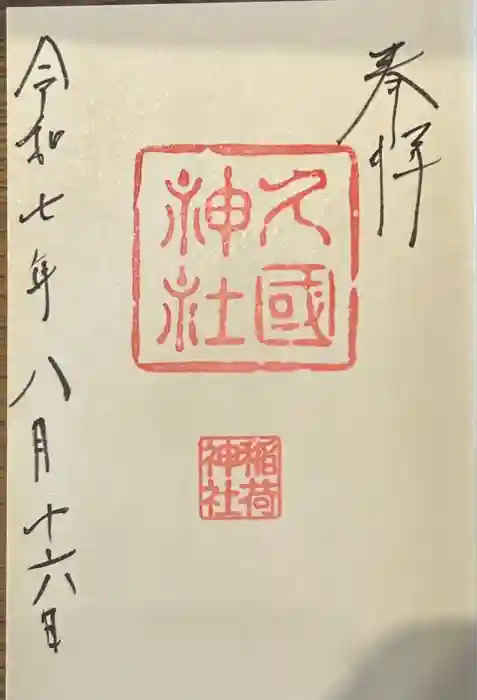 奉拝
久國
神社
稲荷
神社
令和七年八月十六日